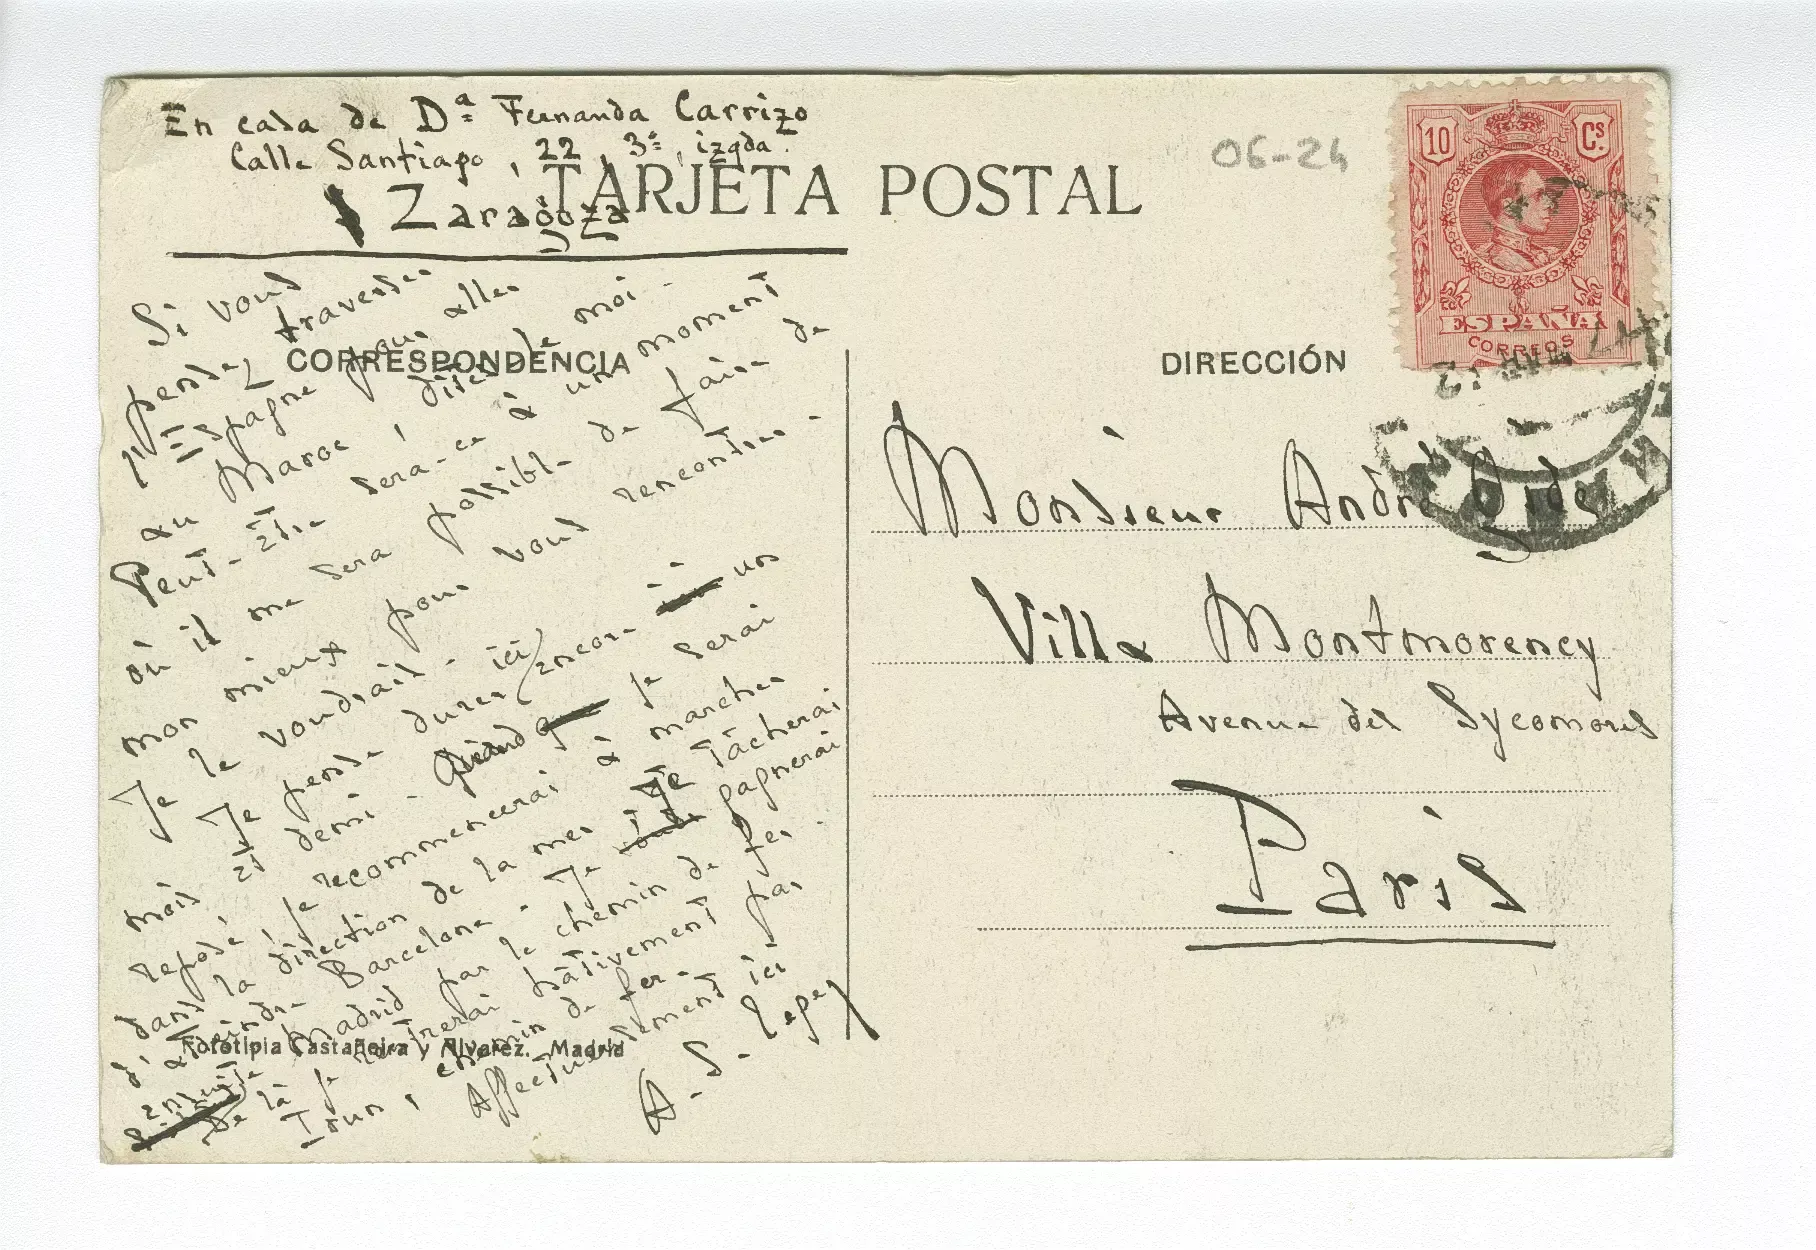 En casa de Dª Fernanda Carrizo
Calle Santiago, 22, 3º, izqda.
Zaragoza
TARJETA POSTAL
06-24
10 Cs.
ESPAÑA
CORREOS
CORRESPONDENCIA
DIRECCIÓN
Si vous
pensez traverser
l'Espagne pour aller
au Maroc, dites-le moi.
Peut-être sera-ce à un moment
où il me sera possible de faire de
mon mieux pour vous rencontrer.
Je le voudrais.
Je pense durer ici encore un
mois et demi. Quand je serai
reposé, je recommencerai à marcher
dans la direction de la mer. Je tâcherai
d'atteindre Barcelone. Je gagnerai
ensuite Madrid par le chemin de fer.
De là je rentrerai hâtivement par
Irun, chemin de fer.
Affectueusement ici
A. S. Leger
Fototipia Castañeira y Alvarez. Madrid
Monsieur André Gide
Villa Montmorency
Avenue des Sycomores
Paris